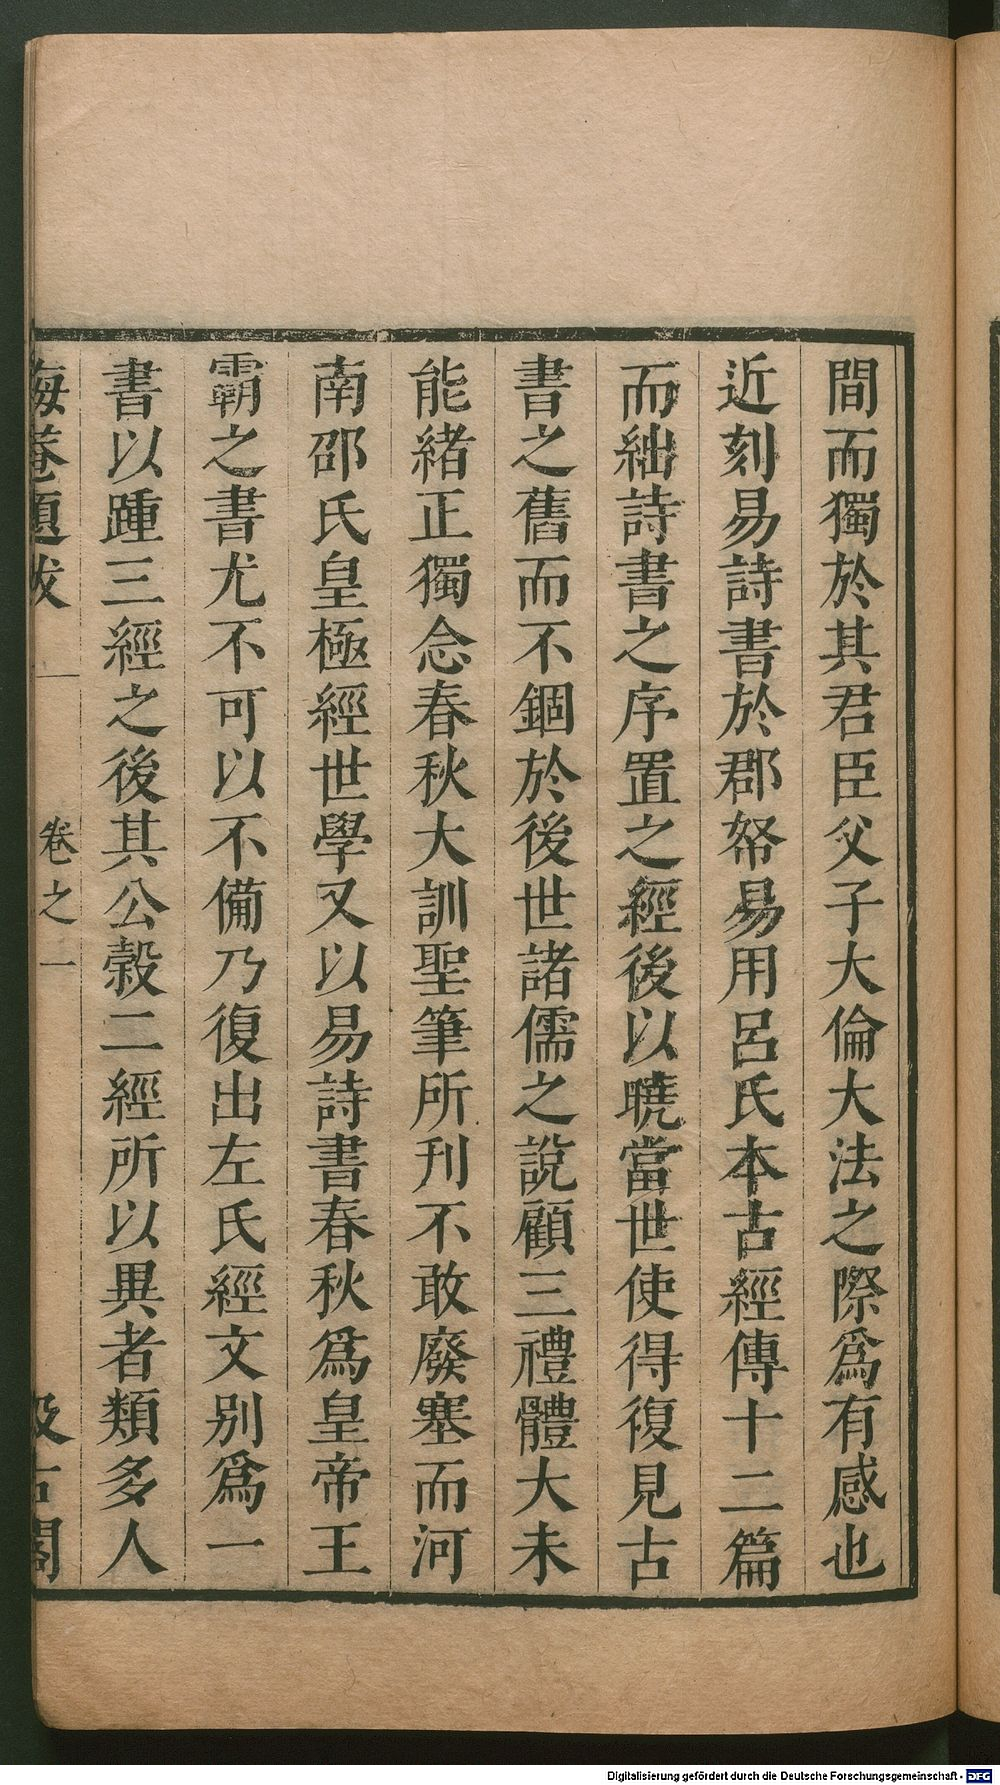 間而獨於其君臣父子大倫大法之際爲有感也
近刻易詩書於郡帑易用呂氏本古經傳十二篇
而絀詩書之序置之經後以曉當世使得復見古
書之舊而不錮於後世諸儒之說顧三禮體大未
能緒正獨念春秋大訓聖筆所刊不敢廢塞而河
南邵氏皇極經世學又以易詩書春秋爲皇帝王
霸之書尤不可以不備乃復出左氏經文別爲一
書以踵三經之後其公穀二經所以異者類多人
晦菴題跋 卷之一 汲古閣
Digitalisierung gefördert durch die Deutsche Forschungsgemeinschaft - DFG